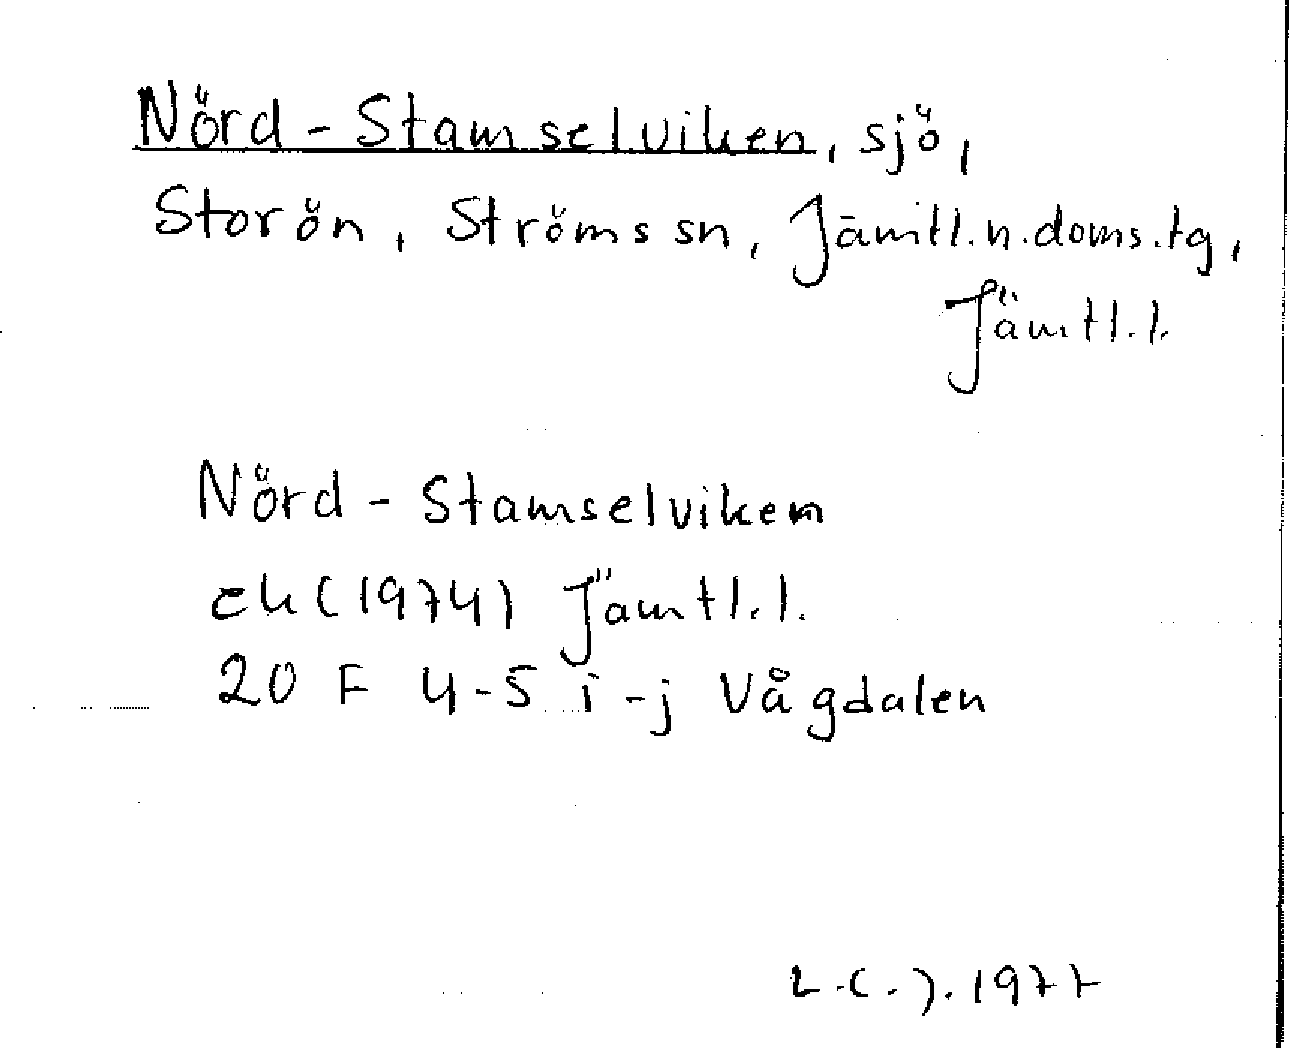 Nörd-Stamselviken, sjö,
Storön, Ströms sn, Jämtl.n.doms.tg,
Jämtl.l.
Nörd-Stamselviken
ek (1974) Jämtl.l.
20 F 4-5 i-j Vågdalen
1977